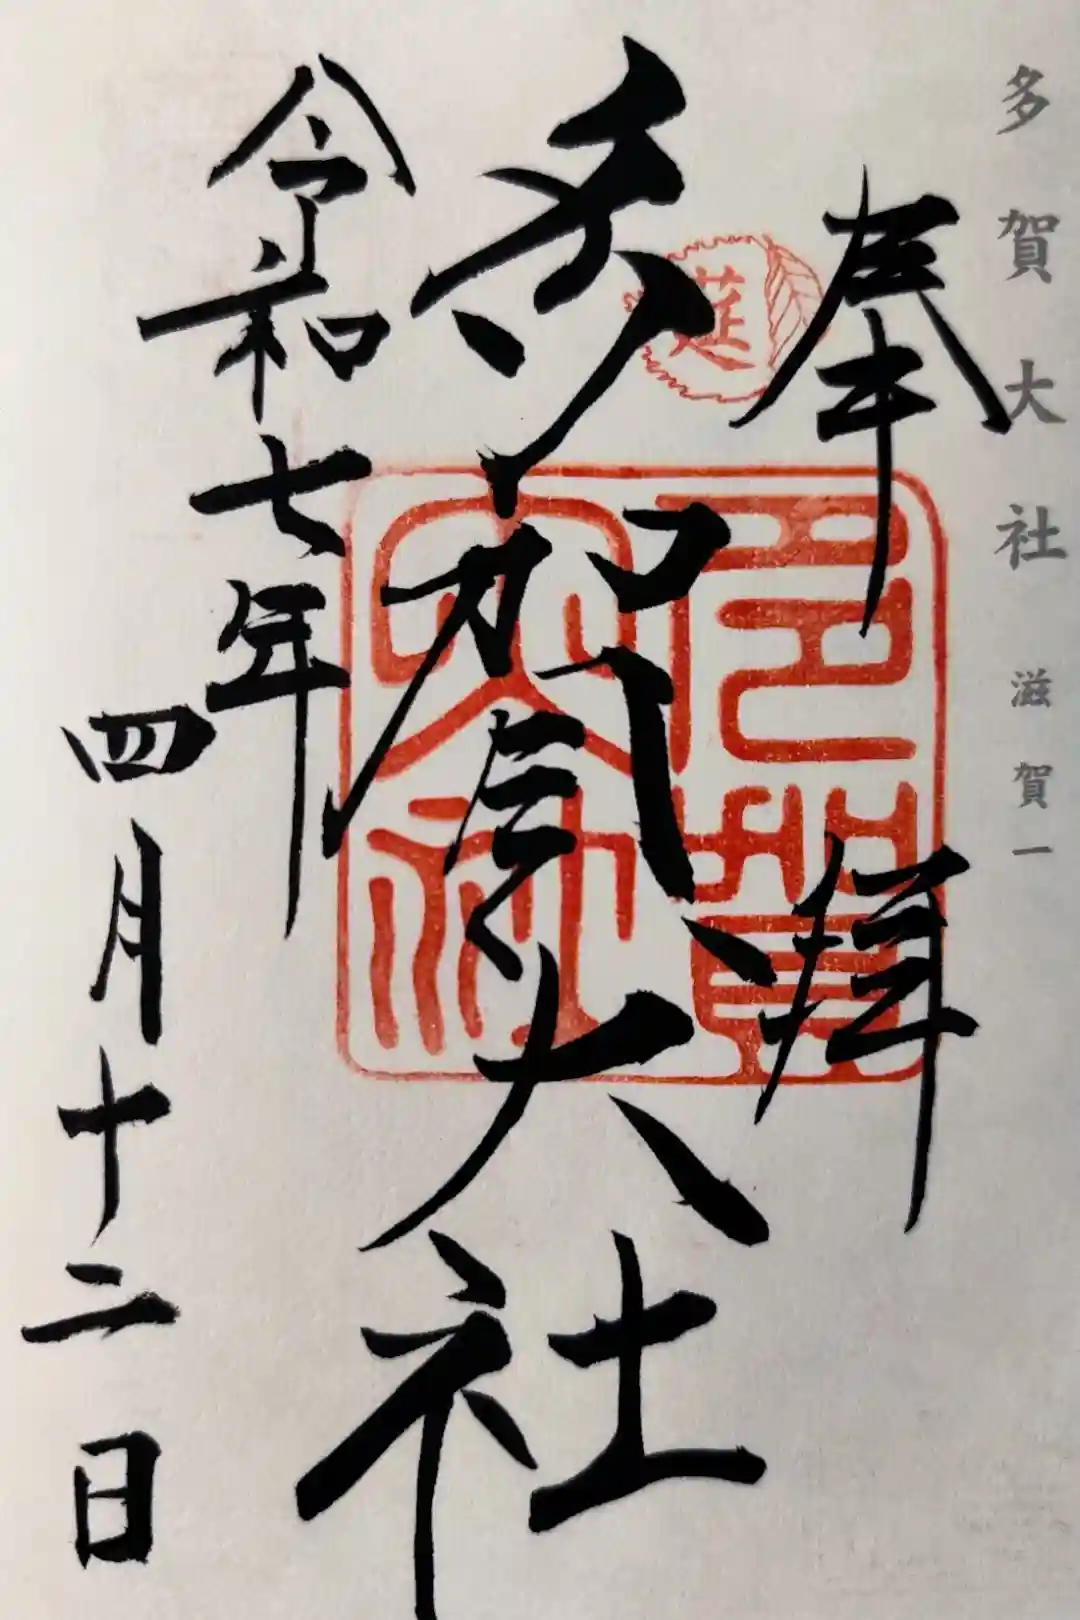 多賀大社 滋賀一
奉拝
莚
多賀大社
多賀大社
令和七年
四月十二日